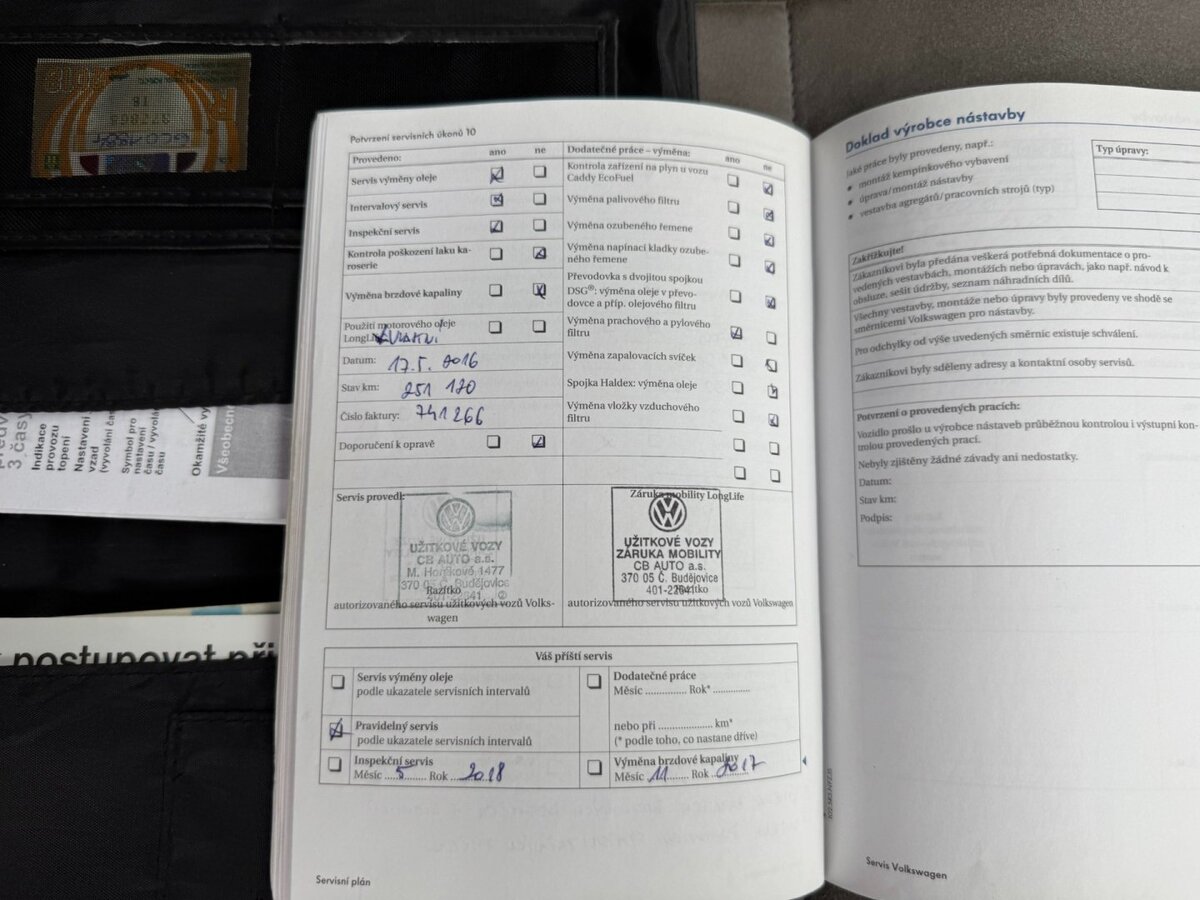 2013
18
Potvrzení servisních úkonů 10
Provedeno:
ano
ne
Servis výměny oleje
Intervalový servis
Inspekční servis
Kontrola poškození laku ka-
roserie
Výměna brzdové kapaliny
Použití motorového oleje
LongLife
Datum: 17.5. 2016
Stav km: 251 120
Číslo faktury: 741266
Doporučení k opravě
Dodatečné práce – výměna:
ano
ne
Kontrola zařízení na plyn u vozu
Caddy EcoFuel
Výměna palivového filtru
Výměna ozubeného řemene
Výměna napínací kladky ozube-
ného řemene
Převodovka s dvojitou spojkou
DSG®: výměna oleje v převo-
dovce a příp. olejového filtru
Výměna prachového a pylového
filtru
Výměna zapalovacích svíček
Spojka Haldex: výměna oleje
Výměna vložky vzduchového
filtru
Servis provedl:
UŽITKOVÉ VOZY
CB AUTO a.s.
M. Horákové 1477
370 05 Č. Budějovice
Razítko
autorizovaného servisu užitkových vozů Volks-
wagen
Záruka mobility LongLife
UŽITKOVÉ VOZY
ZÁRUKA MOBILITY
CB AUTO a.s.
370 05 Č. Budějovice
Razítko
autorizovaného servisu užitkových vozů Volkswagen
Váš příští servis
Servis výměny oleje
podle ukazatele servisních intervalů
Pravidelný servis
podle ukazatele servisních intervalů
Inspekční servis
Měsíc 5 Rok 2018
Dodatečné práce
Měsíc .............. Rok* .............
nebo při .................... km*
(* podle toho, co nastane dříve)
Výměna brzdové kapaliny
Měsíc 11 Rok 2017
Servisní plán
Doklad výrobce nástavby
Jaké práce byly provedeny, např.:
• montáž kempinkového vybavení
• úprava/montáž nástavby
• vestavba agregátů/pracovních strojů (typ)
Typ úpravy:
Zakřížkujte!
Zákazníkovi byla předána veškerá potřebná dokumentace o pro-
vedených vestavbách, montážích nebo úpravách, jako např. návod k
obsluze, sešit údržby, seznam náhradních dílů.
Všechny vestavby, montáže nebo úpravy byly provedeny ve shodě se
směrnicemi Volkswagen pro nástavby.
Pro odchylky od výše uvedených směrnic existuje schválení.
Zákazníkovi byly sděleny adresy a kontaktní osoby servisů.
Potvrzení o provedených pracích:
Vozidlo prošlo u výrobce nástaveb průběžnou kontrolou i výstupní kon-
trolou provedených prací.
Nebyly zjištěny žádné závady ani nedostatky.
Datum:
Stav km:
Podpis:
Servis Volkswagen
3 časy
Indikace
provozu
topení
Nastavení
vzad
(vyvolání čas
Symbol pro
nastavení
času / vyvolá
času
Okamžité vy
Všeobecné
postupovat při